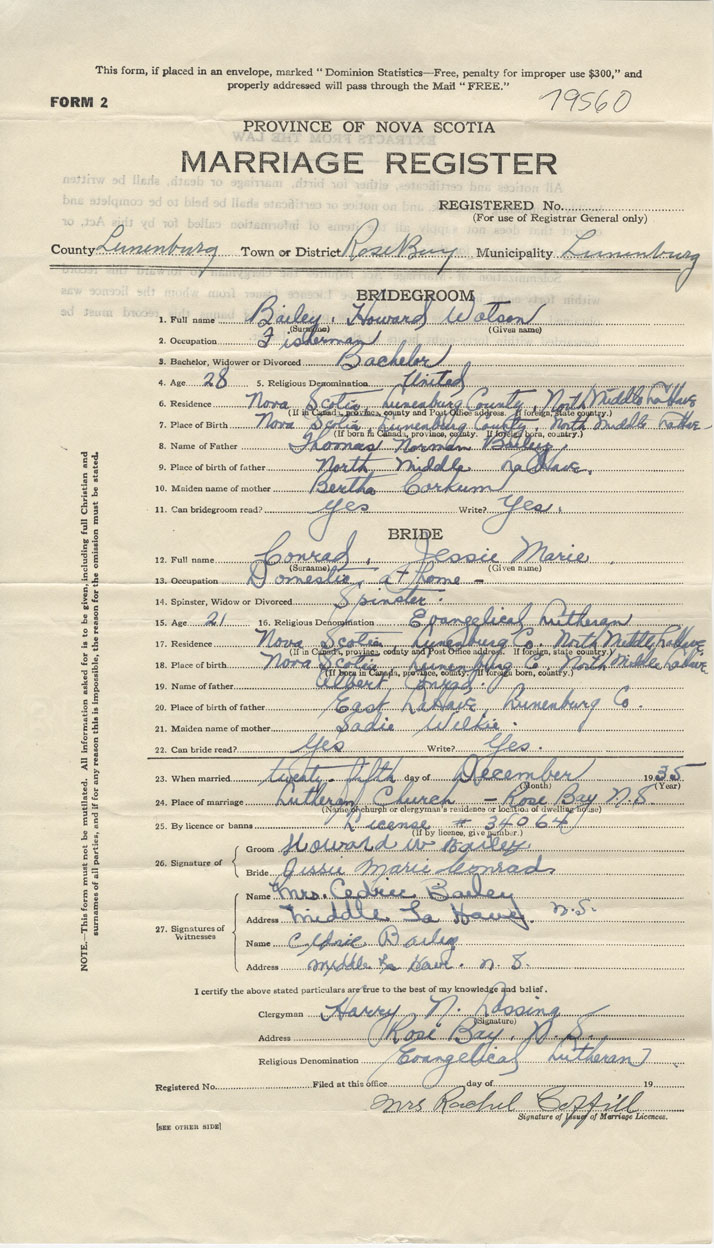 This form, if placed in an envelope, marked "Dominion Statistics—Free, penalty for improper use $300," and
properly addressed will pass through the Mail "FREE."
FORM 2
79560
PROVINCE OF NOVA SCOTIA
MARRIAGE REGISTER
REGISTERED No.
(For use of Registrar General only)
County Lunenburg Town or District Rose Bay Municipality Lunenburg
BRIDEGROOM
1. Full name Bailey, Howard Watson
(Surname) (Given name)
2. Occupation Fisherman
3. Bachelor, Widower or Divorced Bachelor
4. Age 28 5. Religious Denomination United
6. Residence Nova Scotia, Lunenburg County, North Middle LaHave
(If in Canada, province, county and Post Office address. If foreign, state country.)
7. Place of Birth Nova Scotia, Lunenburg County, North Middle LaHave
(If born in Canada, province, county. If foreign born, country.)
8. Name of Father Thomas Norman Bailey
9. Place of birth of father North Middle LaHave.
10. Maiden name of mother Bertha Corkum
11. Can bridegroom read? Yes Write? Yes.
BRIDE
12. Full name Conrad, Jessie Marie
(Surname) (Given name)
13. Occupation Domestic, at home -
14. Spinster, Widow or Divorced Spinster.
15. Age 21 16. Religious Denomination Evangelical Lutheran
17. Residence Nova Scotia, Lunenburg Co. North Middle LaHave
(If in Canada, province, county and Post Office address. If foreign, state country.)
18. Place of birth Nova Scotia, Lunenburg C. North Middle LaHave
(If born in Canada, province, county. If foreign born, country.)
19. Name of father Albert Conrad
20. Place of birth of father East LaHave, Lunenburg Co.
21. Maiden name of mother Sadie Wilkie.
22. Can bride read? Yes Write? Yes.
23. When married twenty-fifth day of December 1935
(Month) (Year)
24. Place of marriage Lutheran Church - Rose Bay N.S.
(Name of church or clergyman's residence or location of dwelling house)
25. By licence or banns License # 34064
(If by licence, give number.)
26. Signature of
Groom Howard W Bailey
Bride Jessie Marie Conrad
27. Signatures of Witnesses
Name Mrs. Cedric Bailey
Address Middle La Have. N.S.
Name Cedric Bailey
Address Middle La Have. N.S.
I certify the above stated particulars are true to the best of my knowledge and belief.
Clergyman Harry N. Lossing
(Signature)
Address Rose Bay, N.S.
Religious Denomination Evangelical Lutheran
Registered No. Filed at this office day of 19
Mrs Rachel
Signature of Issuer of Marriage Licences.
[SEE OTHER SIDE]
NOTE.—This form must not be mutilated. All information asked for is to be given, including full Christian and
surnames of all parties, and if for any reason this is impossible, the reason for the omission must be stated.